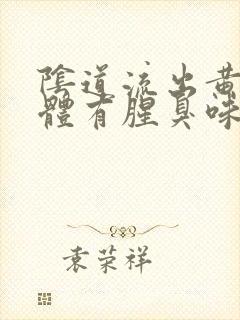 陰道流出黃
體有腥臭味
袁荣祥